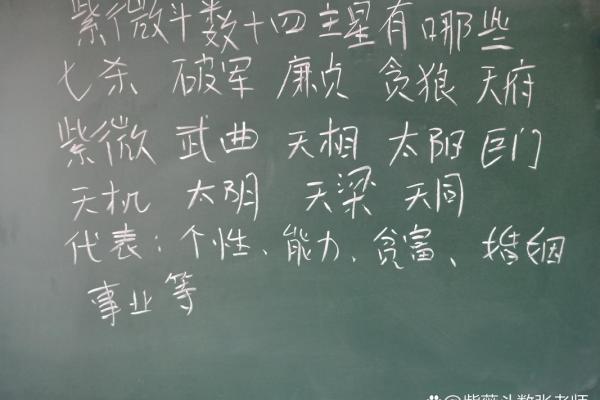 紫微斗数十四主星有哪些
七杀 破军 廉贞 贪狼 天府
紫微 武曲 天相 太阳 巨门
天机 太阴 天梁 天同
代表：个性、能力、贫富、婚姻
事业等
@紫薇斗数张老师